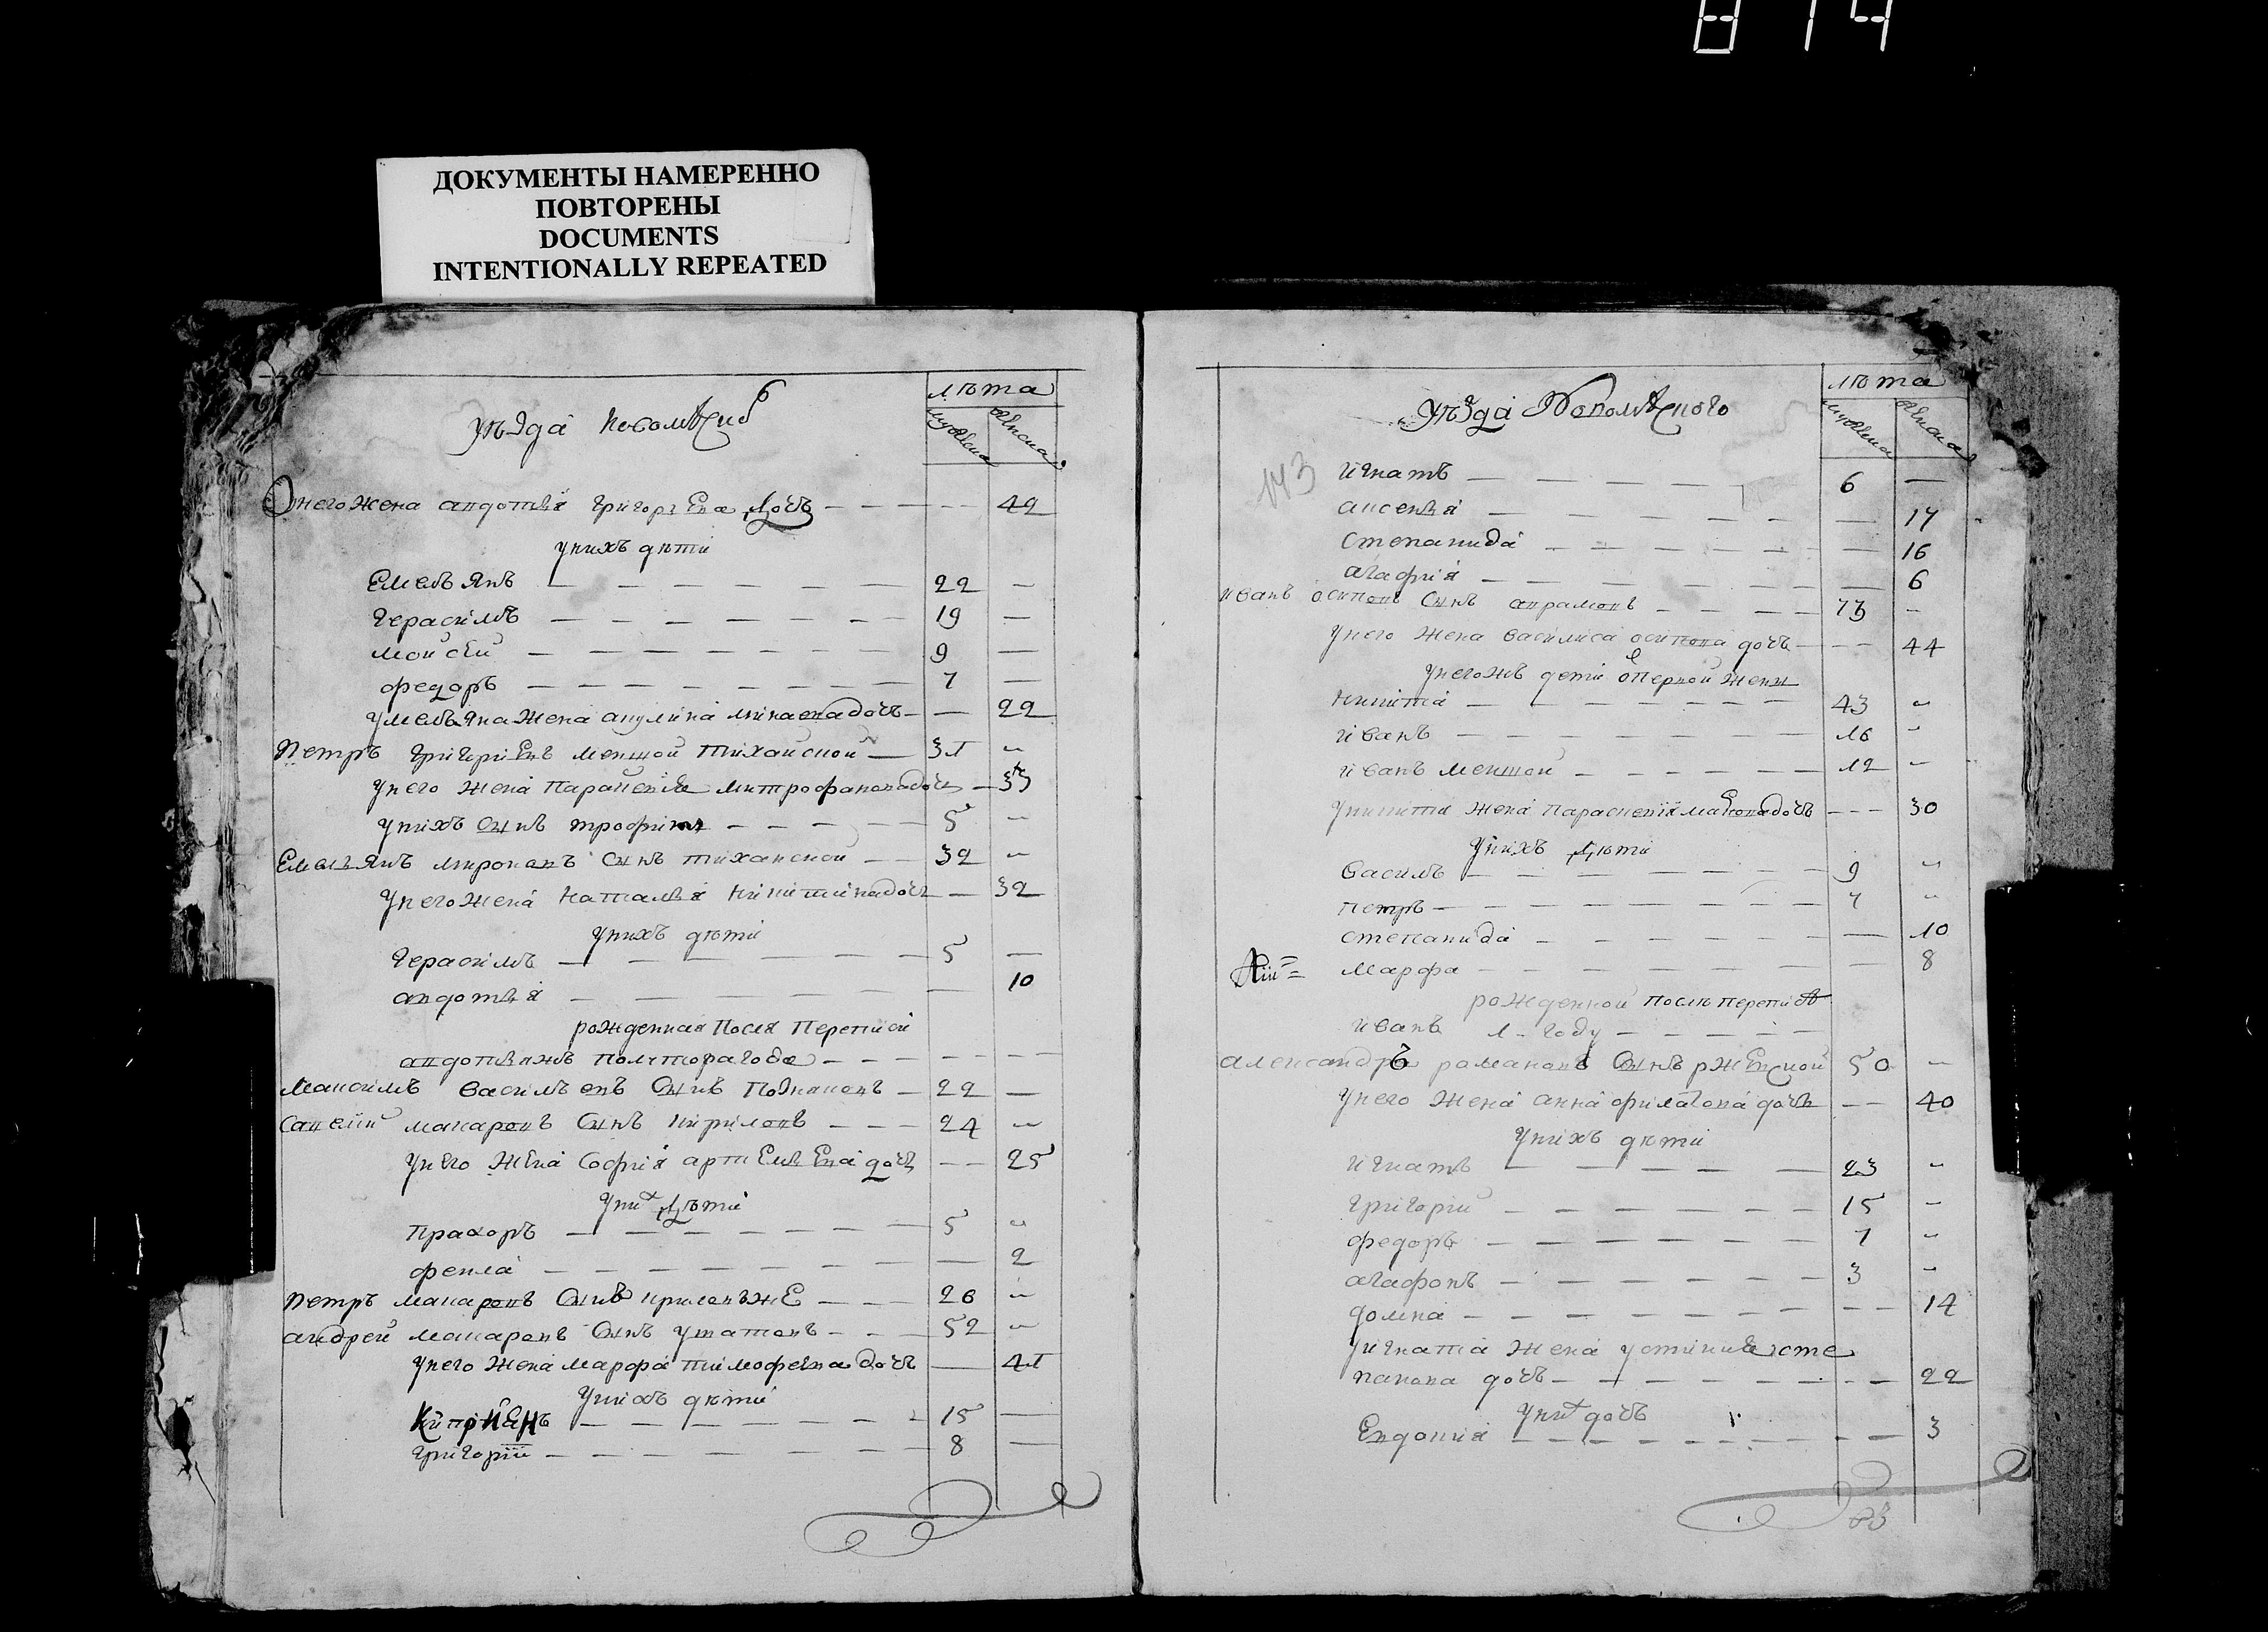 874
ДОКУМЕНТЫ НАМЕРЕННО
ПОВТОРЕНЫ
DOCUMENTS
INTENTIONALLY REPEATED
уѣзда
лѣта
мужеска женска
Унего жена авдотья григорьева дочь 42
унихъ дѣти
Емельянъ 22
герасимъ 19
мойсей 9
федоръ 7
уемельяна жена акулина минаева дочь 22
Петръ григорьевъ меншой 31
унего жена парасковья митрофанова дочь 33
унихъ сынъ трофимъ 5
Емельянъ миронавъ сынъ 32
унего жена наталья никитина дочь 32
унихъ дѣти
герасимъ 5
авдотья 10
рожденная после переписи
авдотьяжъ полутора года
Максимъ васильевъ сынъ 22
савелий макаровъ сынъ кириловъ 24
унего жена софия артемьева дочь 25
уних дѣти
прахоръ 5
фекла 2
Петръ макаровъ сынъ криловъ же 26
андрей макаровъ сынъ ушатовъ 52
унего жена марфа тимофеева дочь 41
унихъ дѣти
Киприянъ 15
григорий 8
уѣзда
лѣта
мужеска женска
143
игнатъ 6
аксенья 17
степанида 16
агафия 6
иванъ осиповъ сынъ 73
унего жена василиса осипова дочь 44
унегожъ дети от первой жены
никита 43
иванъ 16
иванъ меншой 12
уникиты жена парасковия макеева дочь 30
унихъ дѣти
василъ 9
петръ 7
степанида 10
марфа 8
рожденной после переписи
иванъ 1 году
александръ романовъ сынъ ржевской 50
унего жена анна филатова дочь 40
унихъ дѣти
игнатъ 23
григорий 15
федоръ 7
агафонъ 3
домна 14
уигната жена устинья сте
панова дочь 22
уних дочь
Евдокия 3